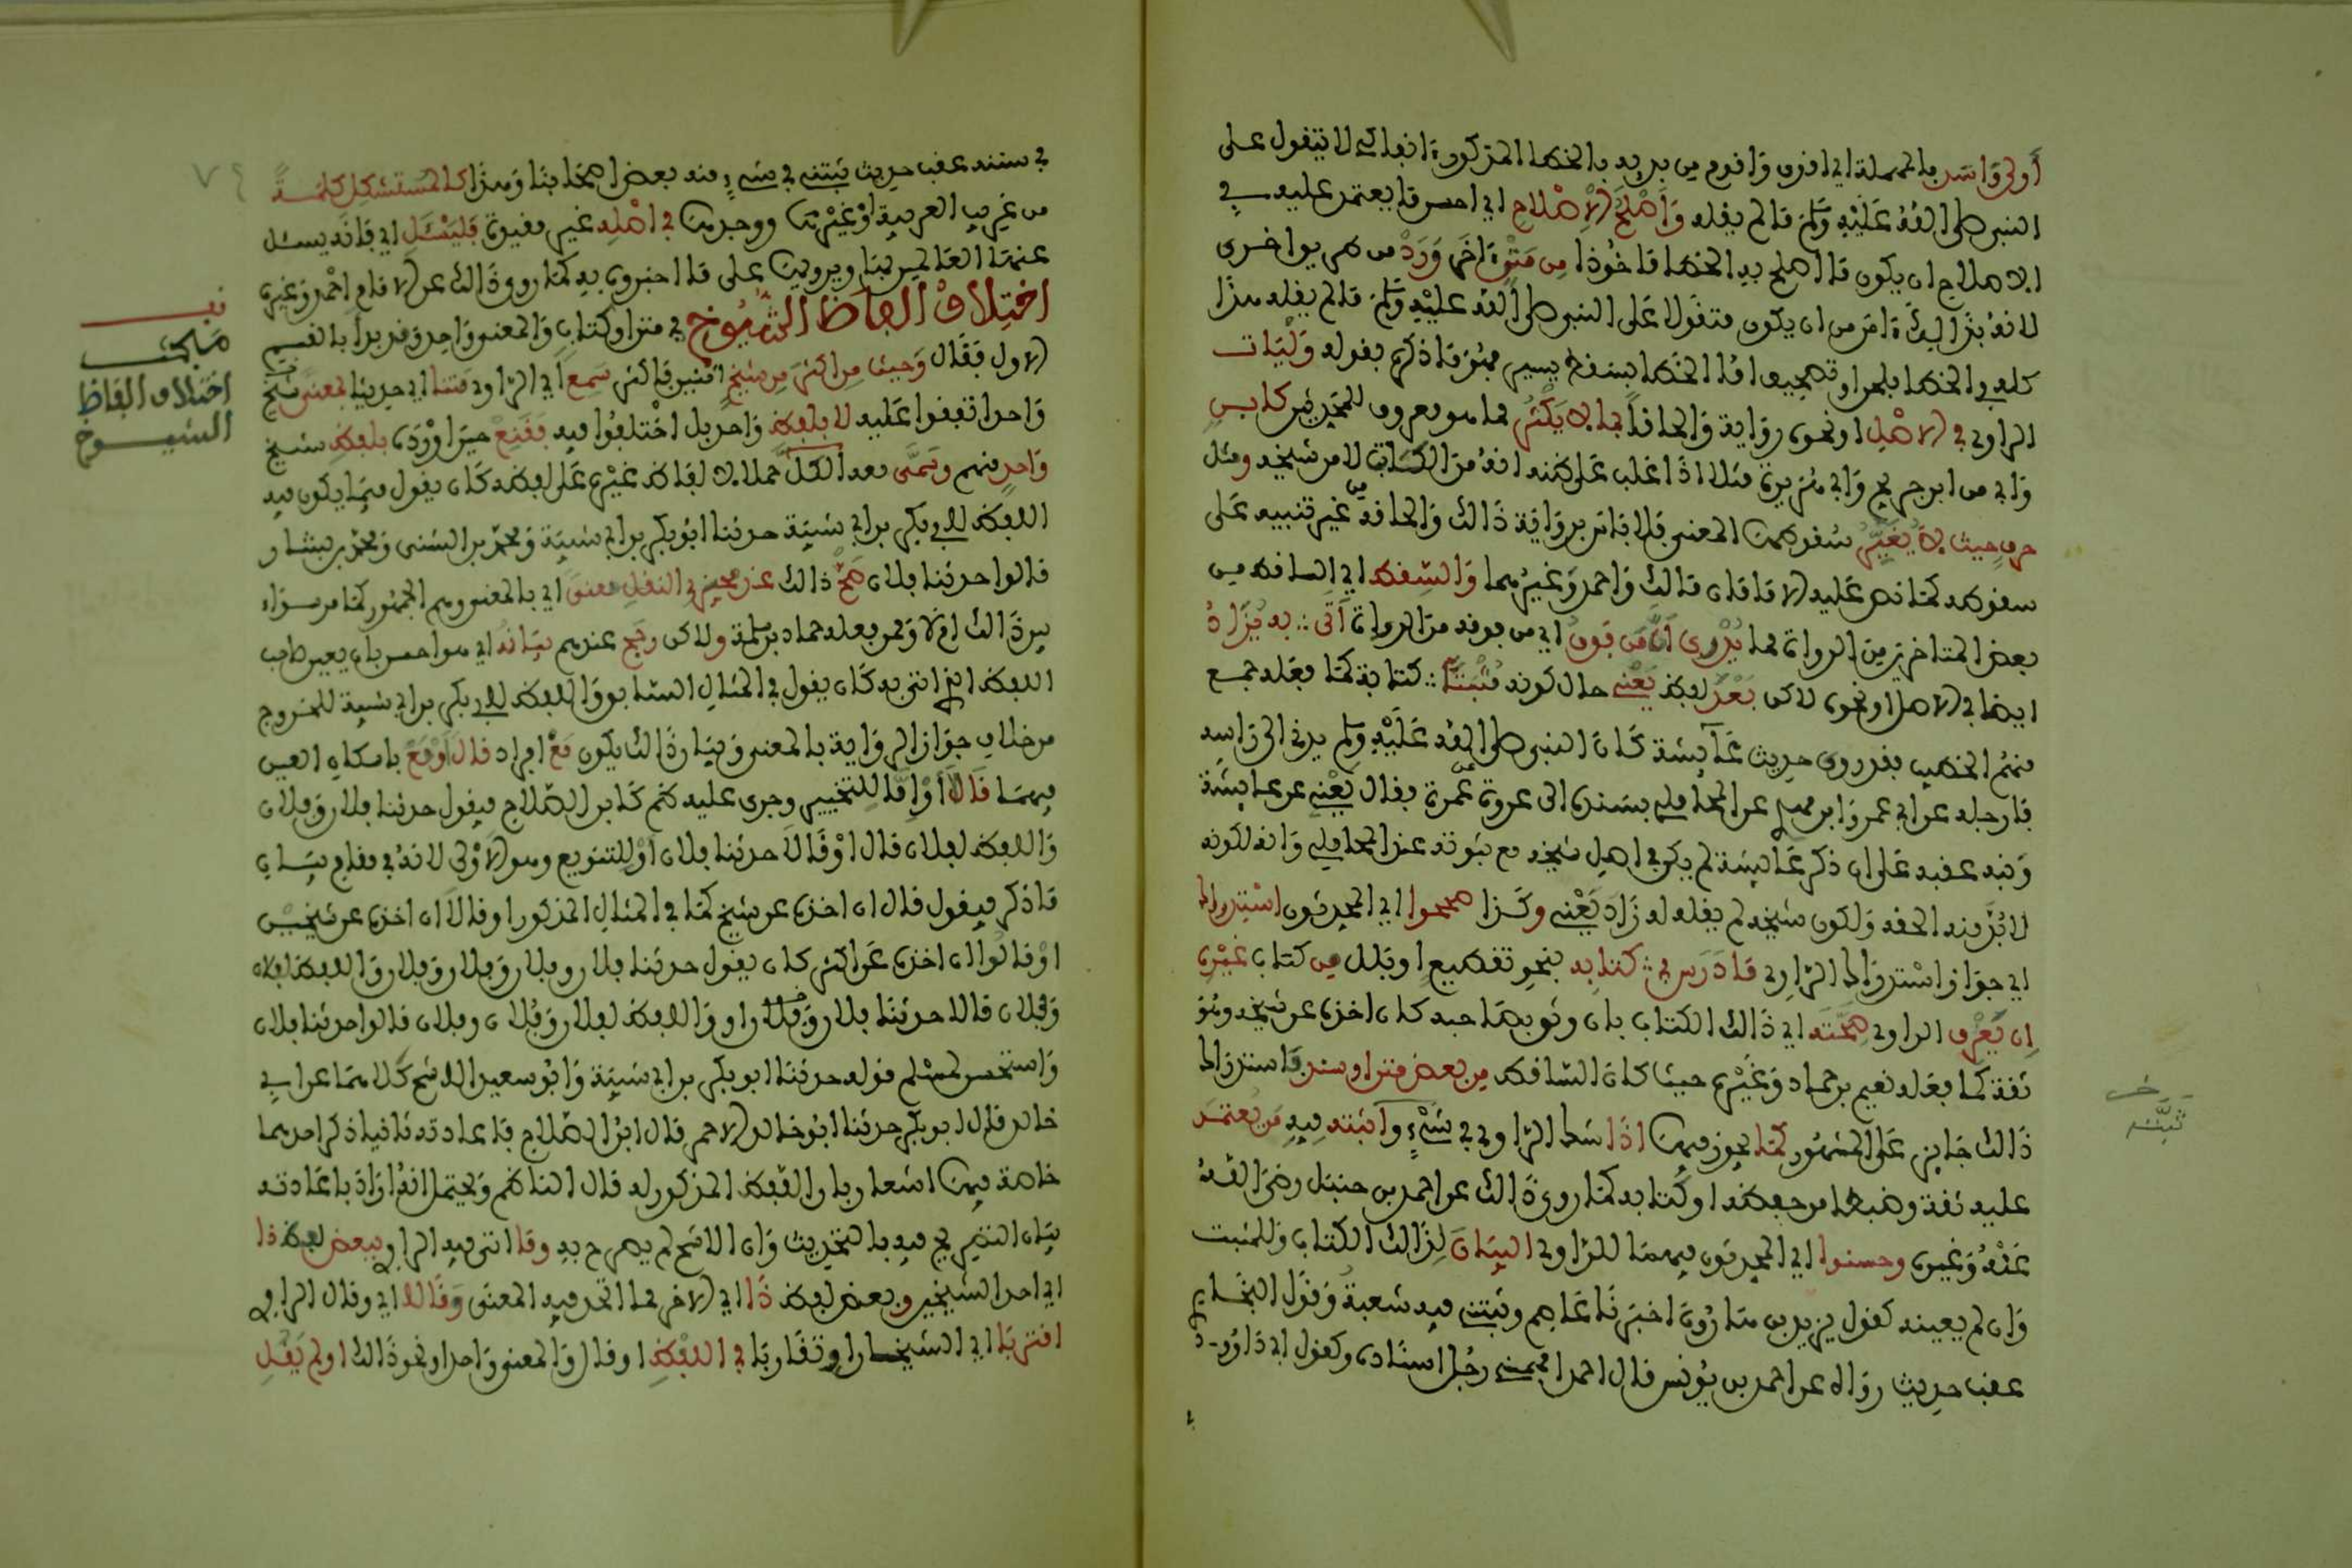 أولى وأسد بالمهملة أي أقرب وأقوم من يريد بالخطا المذكورة انفا كي لا يتقول على
النبي صلى الله عليه وسلم ما لم يقله وأصلح الإصلاح أي أحسن ما يعتمد عليه في
الاصلاح ان يكون ما اصلح به الخطا ماخوذا من متن اخر ورد من طريق اخرى
لانه بذالك امن من ان يكون متقولا على النبي صلى الله عليه وسلم ما لم يقله هذا
كله في الخطا بلحن او تصحيف اما الخطا بسقط يسير فهو ما ذكره بقوله وليات
الراوي في الاصل او نحوه رواية والحاقا بما لا يكثر مما هو معروف للمحدثين كابن
وابي من ابن جريج وابي هريرة مثلا اذا غلب على ظنه انه من الكتاب لا من شيخه ومثل
حرف حيث لا يغير سقوطها المعنى فلا باس برواية ذالك والحاقه من غير تنبيه على
سقوطه كما نص عليه الامامان مالك واحمد وغيرهما والسقط اي الساقط من
بعض المتاخرين من الرواة مما يدرى ان من فوق اي من فوقه من الرواة اتى به يزاد
ايضا في الاصل او نحوه لاكن بعد لفظ يعني حال كونه مثبتا كتابة كما فعله جمع
منهم الخطيب فقد روى حديث عائشة كان النبي صلى الله عليه وسلم يدني الي راسه
فارجله عن ابي عمر وابن مهدي عن المحاملي بسنده الى عروة عن عمرة فقال يعني عن عائشة
ونبه عقبه على ان ذكر عائشة لم يكن في اصل شيخه مع ثبوته عند المحاملي وانه لكونه
لا بد منه الحقه ولكون شيخه لم يقله له زاد يعني وكذا صححوا اي المحدثون استدراك
اي جواز استدراك الراوي ما درس في كتابه بنحو تقطيع او بلل من كتاب غيره
ان يعرف الراوي صحته اي ذالك الكتاب بان وثق بصاحبه كان اخذه عن شيخه وهو
ثقة كما فعله نعيم بن حماد وغيره حيث كان الساقط من بعض متن او سند فاستدراك
ذالك جايز على المشهور كما يجوز فيما اذا شك الراوي في شيء واثبته فيه من يعتمد
عليه ثقة وضبطا من حفظه او كتابه كما روي ذالك عن احمد بن حنبل رضي الله
عنه وغيره وحسنوا اي المحدثون فيهما للراوي البيان لذالك الكتاب وللمثبت
وان لم يعينه كقول يزيد بن هارون اخبرنا عاصم وثبتني فيه شعبة وقول البخاري
عقب حديث رواه عن احمد بن يونس قال احمد افهمني رجل اسناده وكقول ابي داود
خ
ثبته
في سننه عقب حديث ثبتني في شيء منه بعض اصحابنا وهذا كالمستشكل كلمة
من غريب العربية او غيرها ووجدها في اصله غير مقيدة فليسئل اي فانه يسئل
عنها العالمين بها ويرويها على ما اخبروه به كما روي ذالك عن الامام احمد وغيره
اختلاف الفاظ الشيوخ في متن او كتاب والمعنى واحد وقد بدا بالقسم
الاول فقال وحيث من اكثر من شيخ اثنين فاكثر سمع اي الراوي متنا اي حديثا لمعنى
واحد اتفقوا عليه لا بلفظ واحد بل اختلفوا فيه فقنع حين اورده بلفظ شيخ
واحد منهم وسمى معه الكل حملا لالفاظ غيره على لفظه كان يقول فيما يكون فيه
اللفظ لابي بكر بن ابي شيبة حدثنا ابو بكر بن ابي شيبة ومحمد بن المثنى ومحمد بن بشار
قالوا حدثنا فلان صح ذالك عند مجيزي النقل معنى اي بالمعنى وهم الجمهور كما مر سواء
بين ذالك ام لا وممن فعله حماد بن سلمة ولاكن رجح عندهم بيانه اي هو احسن بان يعين صاحب
اللفظ الذي اتى به كان يقول في المثال السابق واللفظ لابي بكر بن ابي شيبة للخروج
من خلاف جواز الرواية بالمعنى وتارة ذالك يكون مع افراد قال او مع باسكان العين
فيهما قالا او اما للتخيير وجرى عليه ظاهر كلام ابن الصلاح فيقول حدثنا فلان وفلان
واللفظ لفلان قال او قالا حدثنا فلان او للتنويع وهو الاولى لانه في مقام بيان
ما ذكر فيقول قال ان اخذه عن شيخ كما في المثال المذكور او قالا ان اخذه عن شيخين
او قالوا ان اخذه عن اكثر كان يقول حدثنا فلان وفلان وفلان وفلان واللفظ لفلان
وفلان قالا حدثنا فلان وفلان واللفظ لفلان وفلان وفلان قالوا حدثنا فلان
واستحسن لمسلم قوله حدثنا ابو بكر بن ابي شيبة وابو سعيد الاشج كلاهما عن ابي
خالد قال ابو بكر حدثنا ابو خالد الاحمر قال ابن الصلاح فاعادته ثانيا ذكر احدهما
خاصة فيها اشعار بان اللفظ المذكور له قال الناظم ويحتمل انه اراد باعادته
بيان التصريح فيه بالتحديث وان الاشج لم يصرح به وما اتى فيه الراوي ببعض لفظ ذا
اي احد الشيخين وبعض لفظ ذا اي الاخر مما اتحد فيه المعنى وقالا اي وقال الراوي
اقتربا اي الشيخان او تقاربا في اللفظ او قال والمعنى واحد او نحو ذالك او لم يقل
قف
مبحث
اختلاف الفاظ
الشيوخ